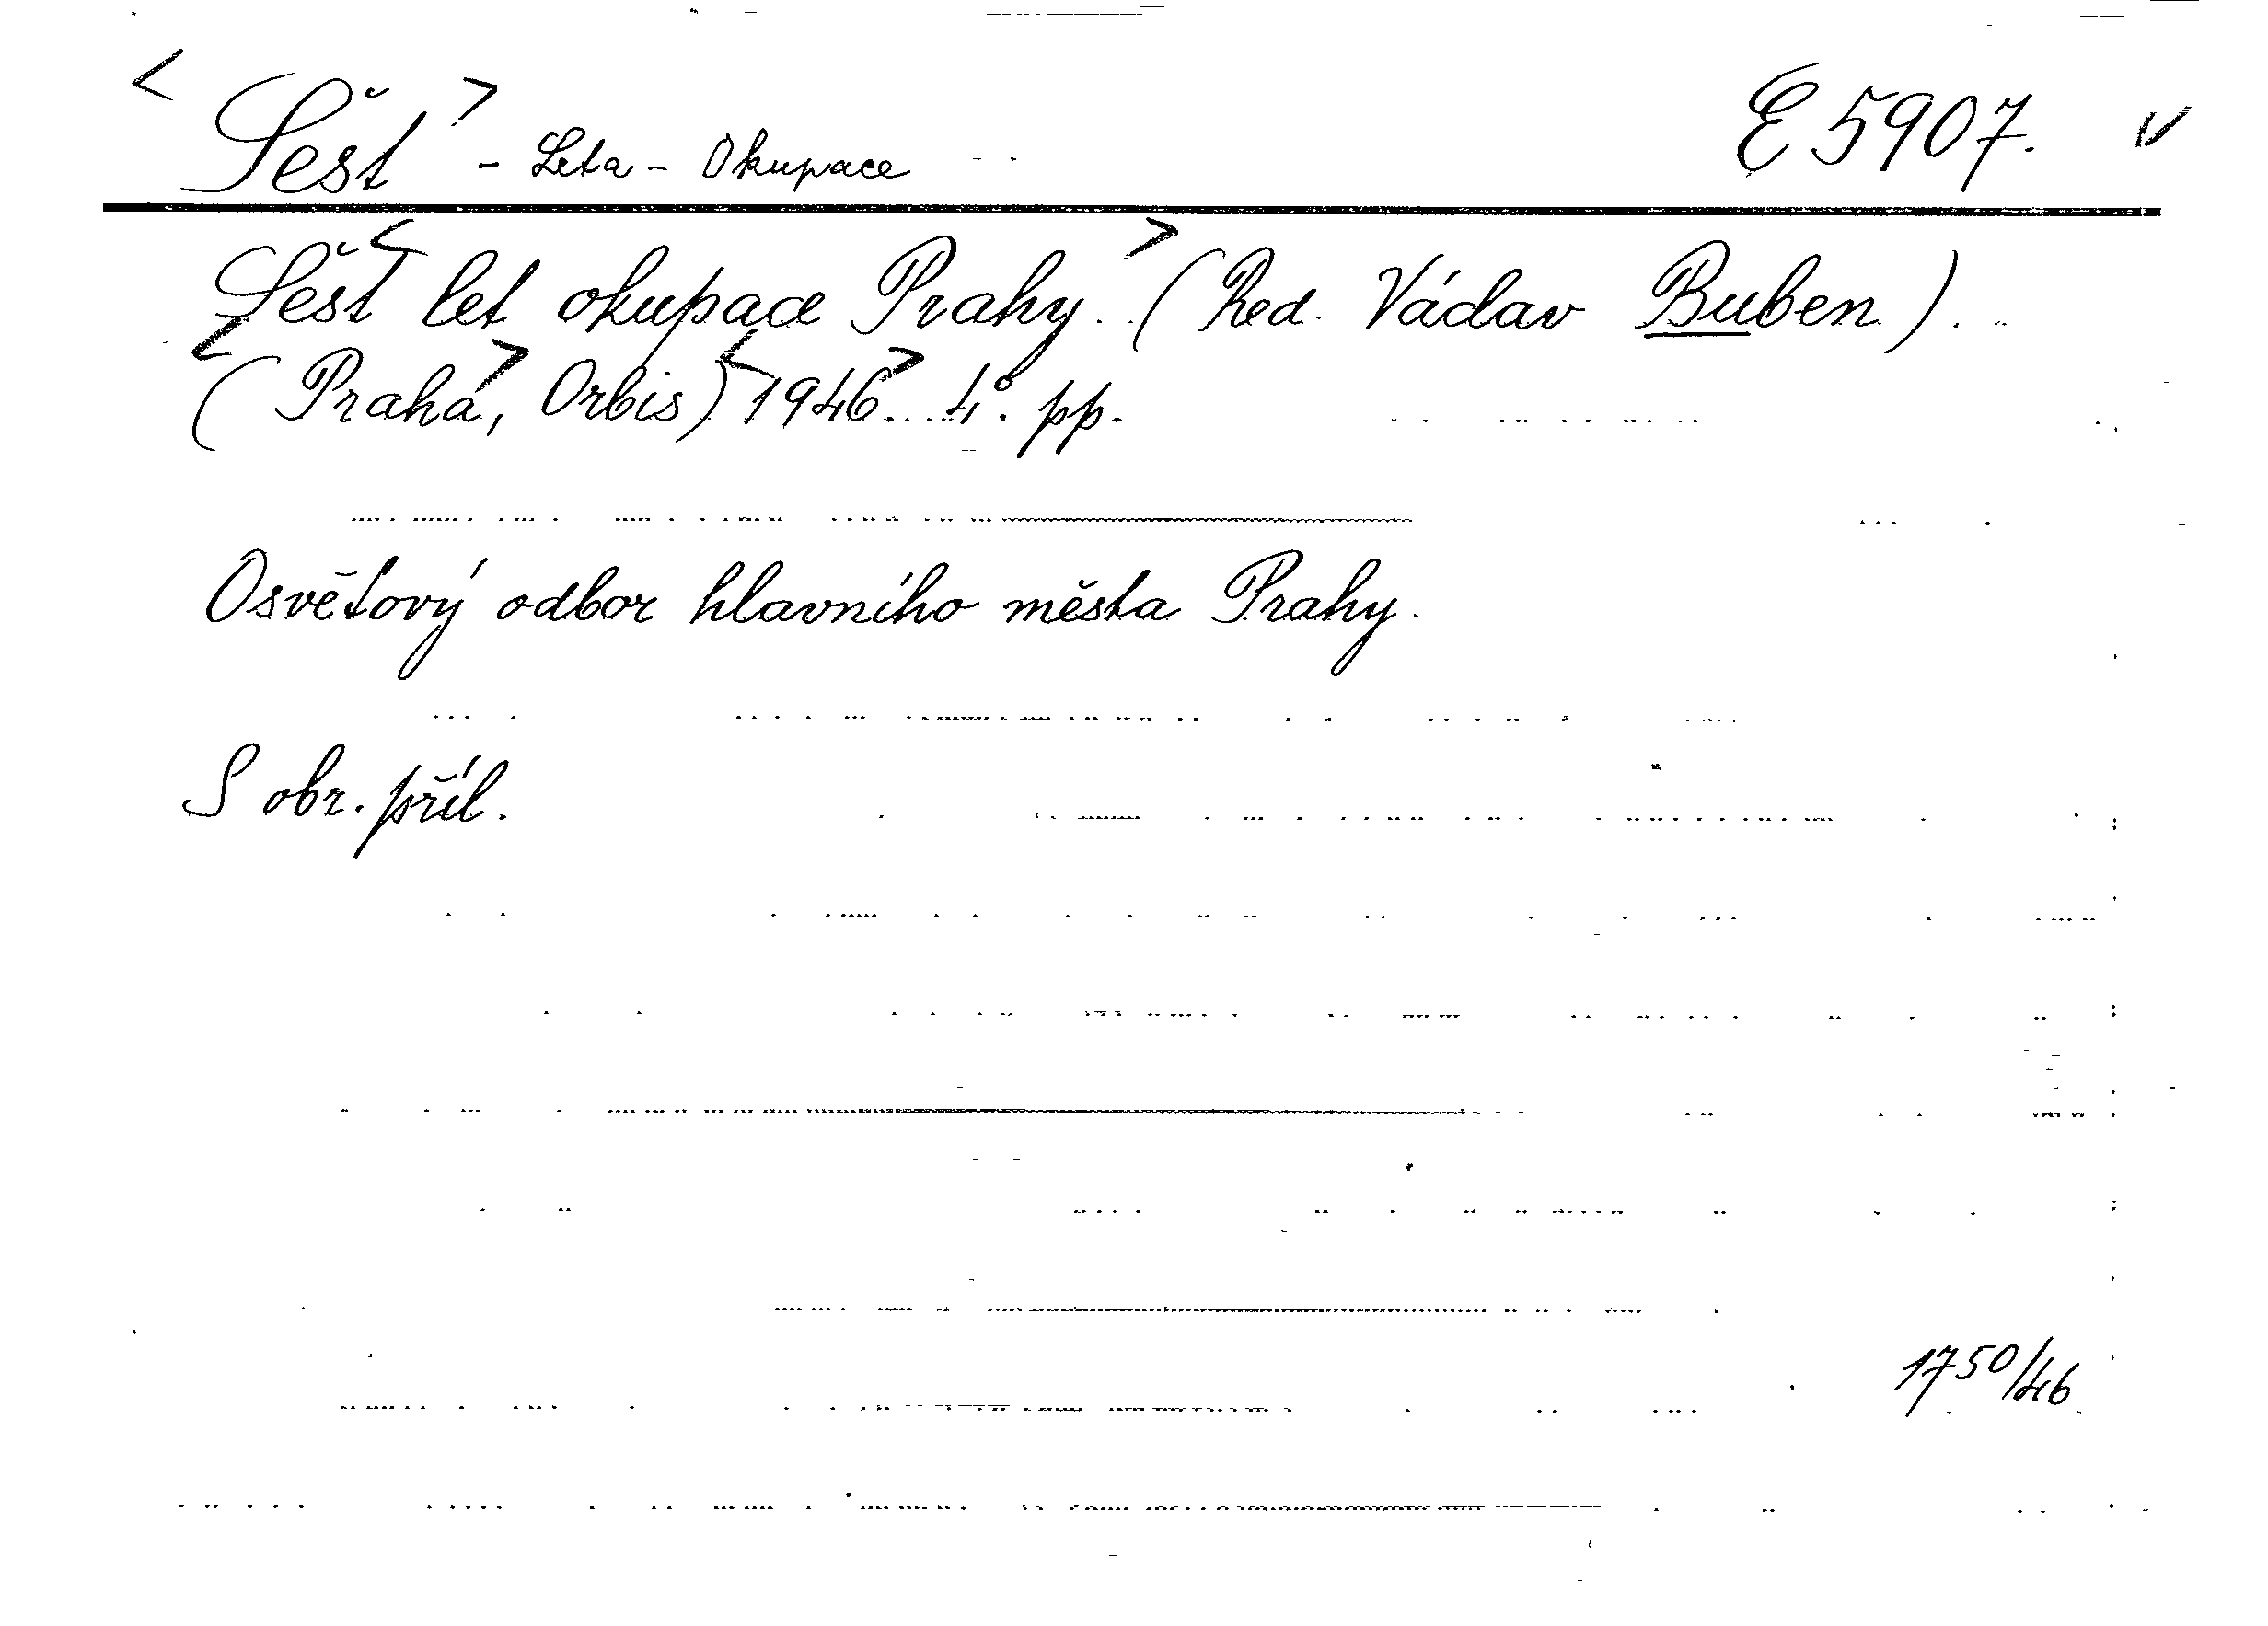 < Šest > - Leta - Okupace E 5907. v
Šest < let okupace Prahy. > (Red. Václav Buben).
< (Praha >, Orbis) < 1946 >. 4°. pp.
Osvětový odbor hlavního města Prahy.
S obr. příl.
1750/46